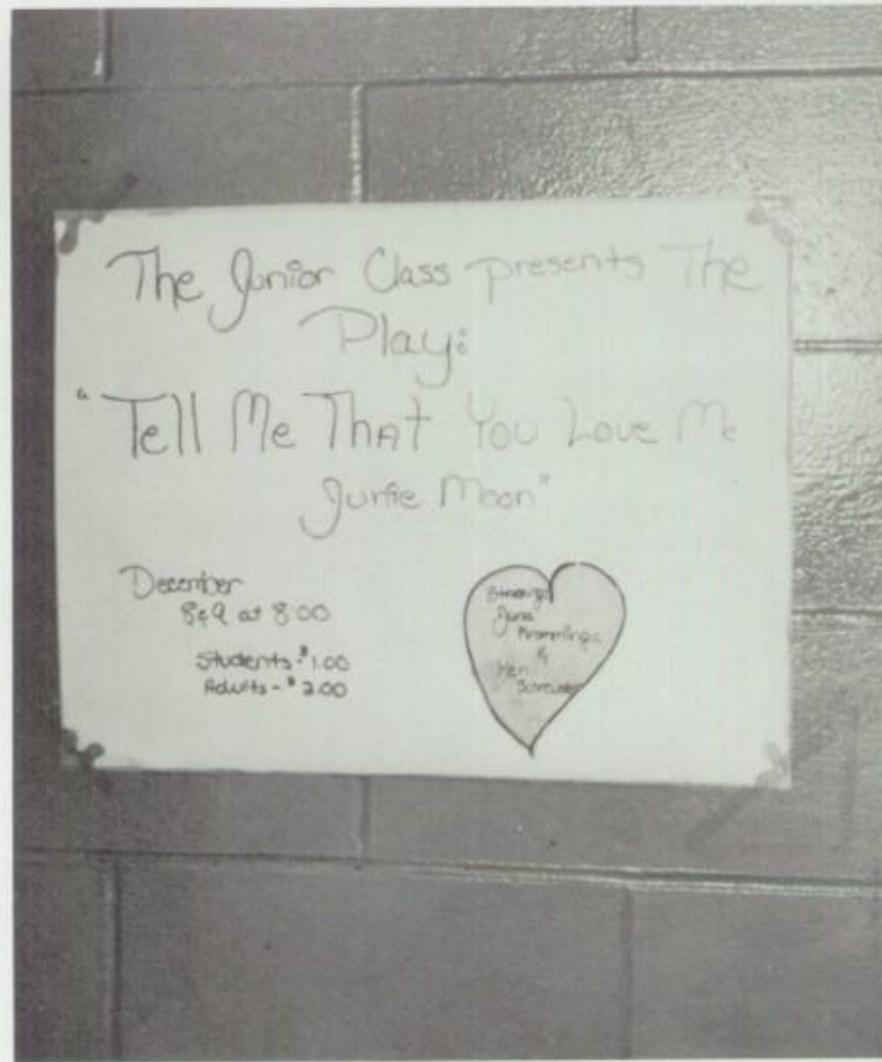 The Junior Class presents The
Play:
"Tell Me That You Love Me
Junie Moon"
December
8&9 at 8:00
Students - $1.00
Adults - $2.00
Starring:
June
&
Ken